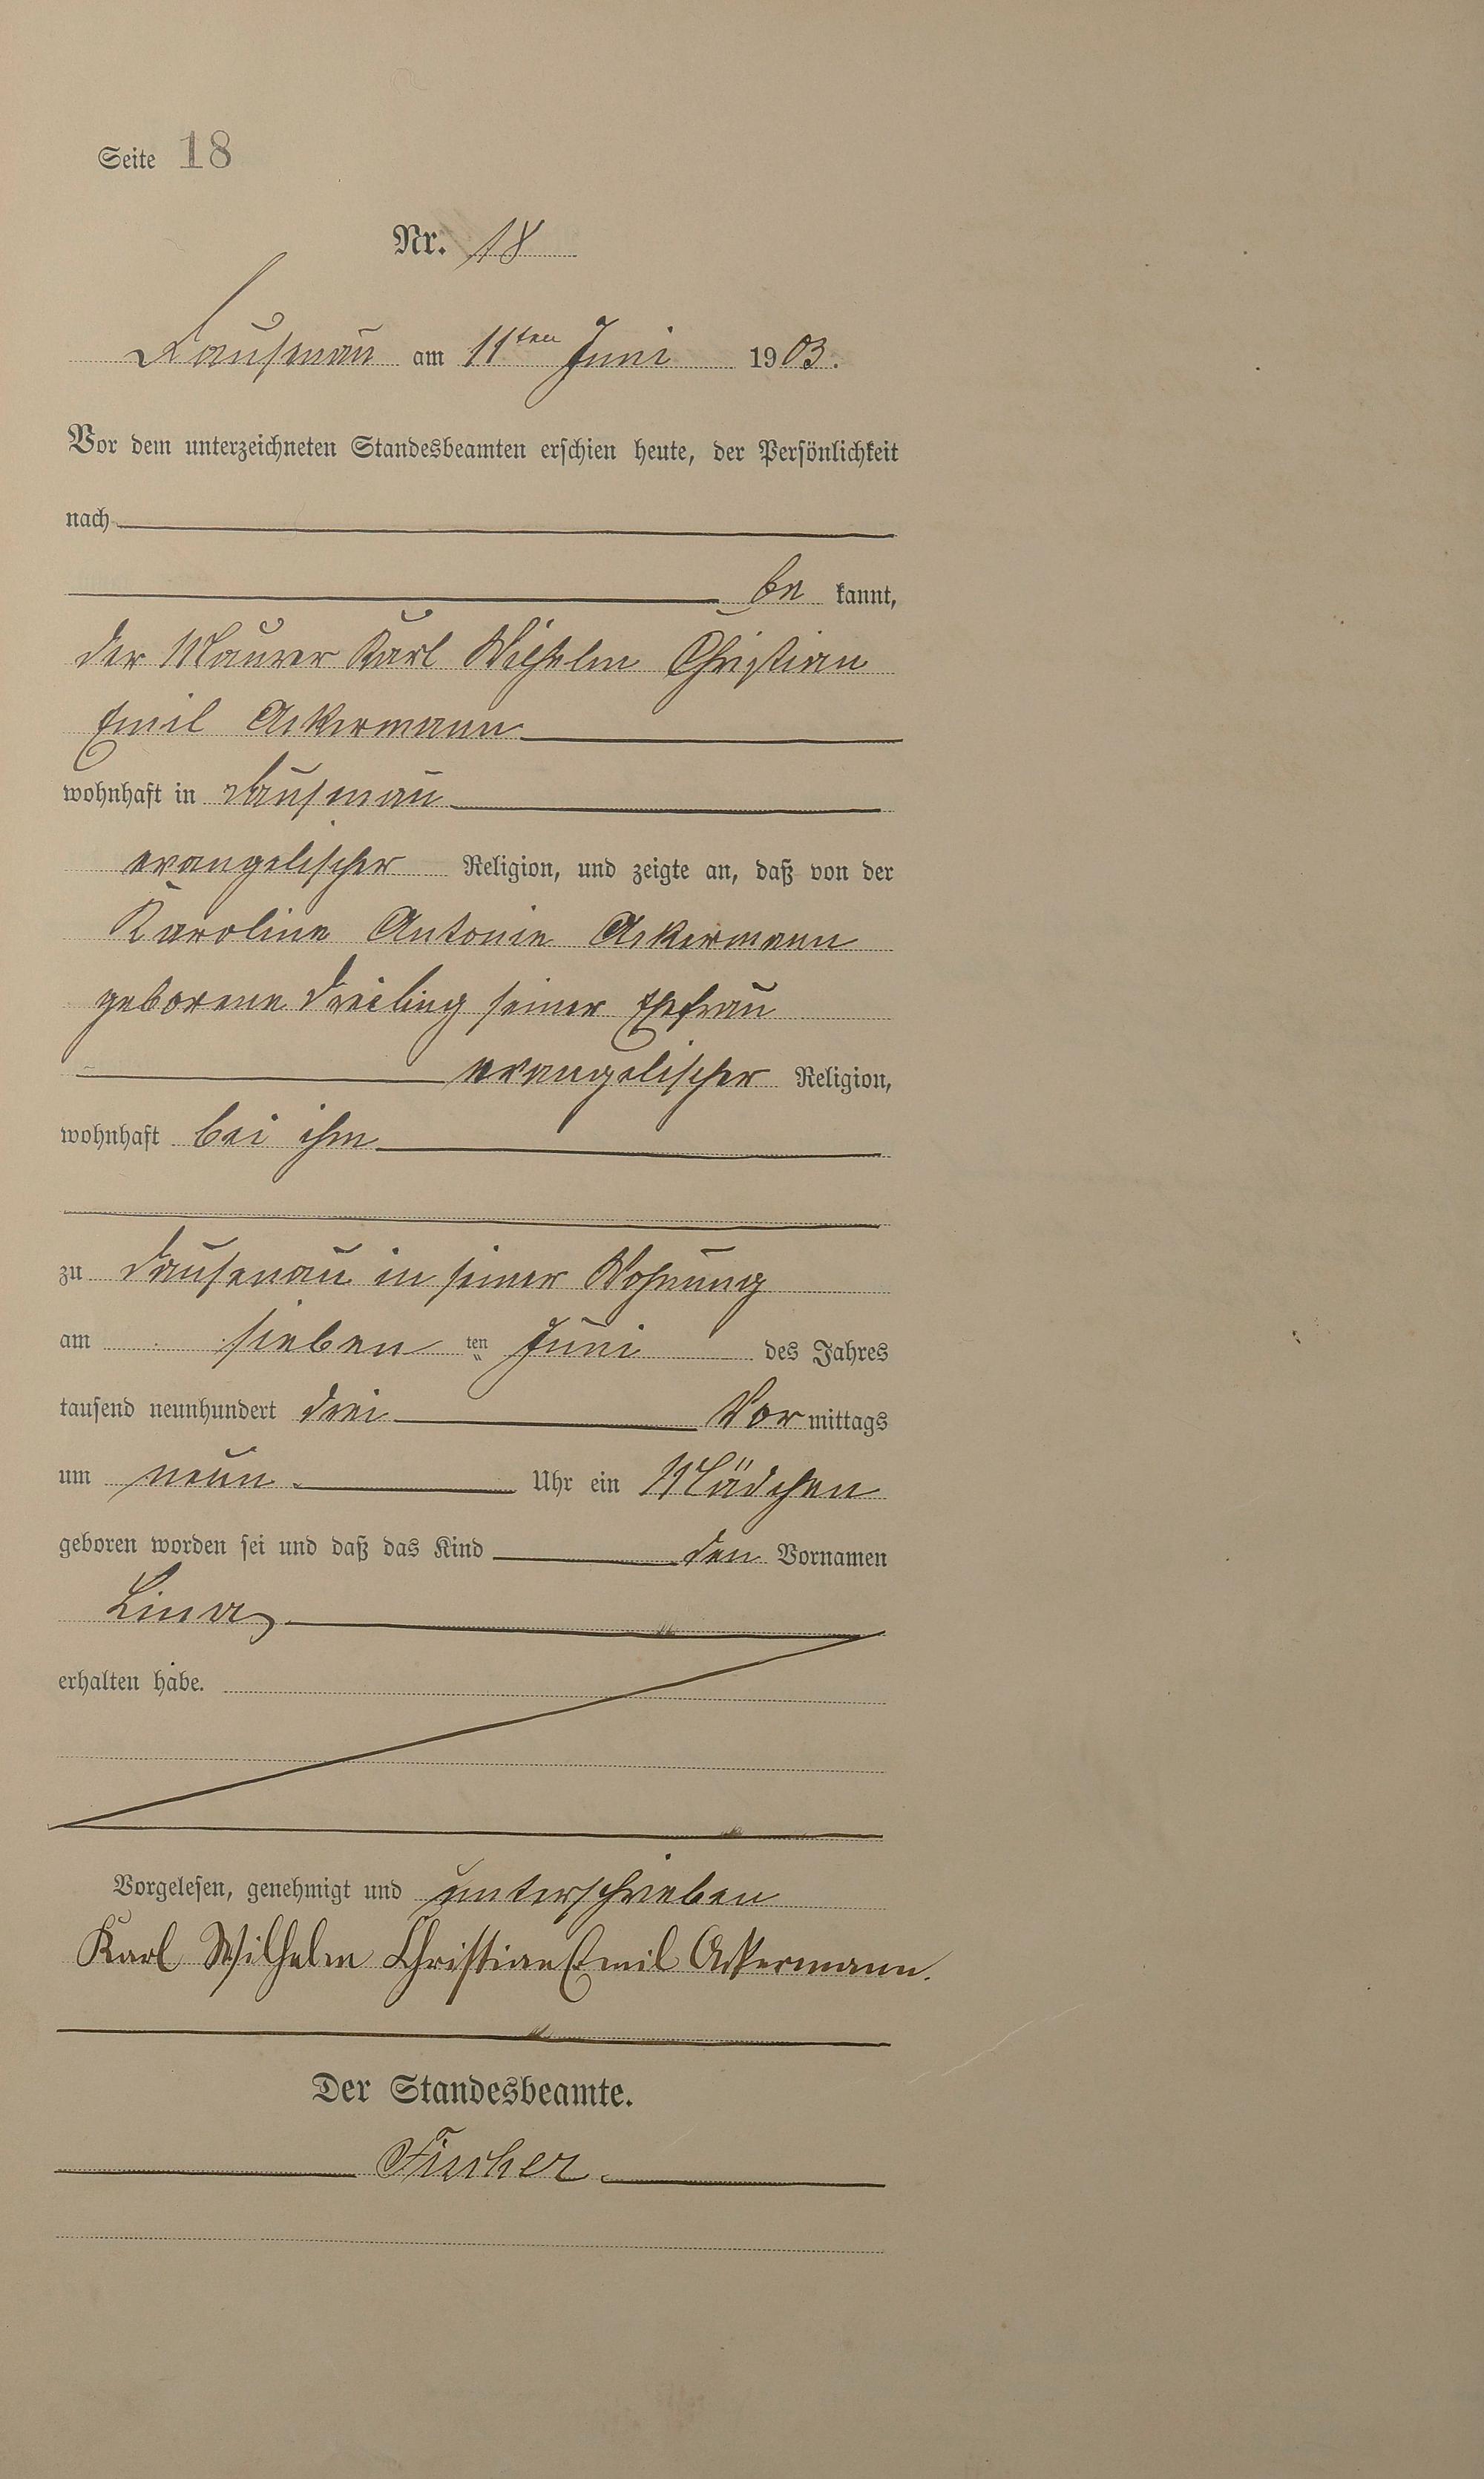 Seite 18
Nr. 18
Dausenau am 11ten Juni 1903.
Vor dem unterzeichneten Standesbeamten erschien heute, der Persönlichkeit
nach
be kannt,
der Maurer Karl Wilhelm Christian
Emil Ackermann
wohnhaft in Dausenau
evangelischer Religion, und zeigte an, daß von der
Karoline Antonie Ackermann
geborene Dreiling seiner Ehefrau
evangelischer Religion,
wohnhaft bei ihm
zu Dausenau in seiner Wohnung
am sieben ten Juni des Jahres
tausend neunhundert drei Vor mittags
um neun Uhr ein Mädchen
geboren worden sei und daß das Kind den Vornamen
Lina
erhalten habe.
Vorgelesen, genehmigt und unterschrieben
Karl Wilhelm Christian Emil Ackermann.
Der Standesbeamte.
Fischer